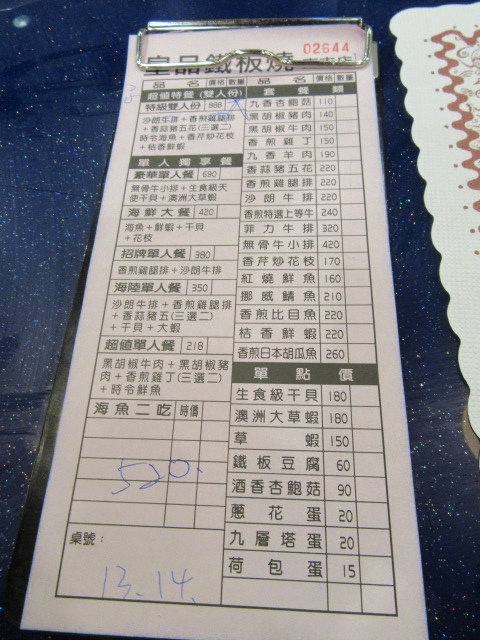 皇品鐵板燒
02644
品名 價格 數量
超值特餐 (雙人份)
特級雙人份 888
沙朗牛排+香煎雞腿排
+香蒜豬五花(三選二)
時令海魚+香芹炒花枝
+桔香鮮蝦
單人獨享餐
豪華單人餐 690
無骨牛小排+生食級天
使干貝+澳洲大草蝦
海鮮大餐 420
海魚+鮮蝦+干貝
+花枝
招牌單人餐 380
香煎雞腿排+沙朗牛排
海陸單人餐 350
沙朗牛排+香煎雞腿排
+香蒜豬五(三選二)
+干貝+大蝦
超值單人餐 218
黑胡椒牛肉+黑胡椒豬
肉+香煎雞丁(三選二)
+時令鮮魚
海魚二吃 時價
520.
桌號:
13.14.
品名 價格 數量
套餐類
九香杏鮑菇 110
黑胡椒豬肉 140
黑胡椒牛肉 150
香煎雞丁 150
九香羊肉 190
香蒜豬五花 220
香煎雞腿排 220
沙朗牛排 220
香煎特選上等牛 240
菲力牛排 320
無骨牛小排 420
香芹炒花枝 170
紅燒鮮魚 160
挪威鯖魚 210
香煎比目魚 220
桔香鮮蝦 220
香煎日本胡瓜魚 260
單點價
生食級干貝 180
澳洲大草蝦 180
草蝦 150
鐵板豆腐 60
酒香杏鮑菇 90
蔥花蛋 20
九層塔蛋 20
荷包蛋 15